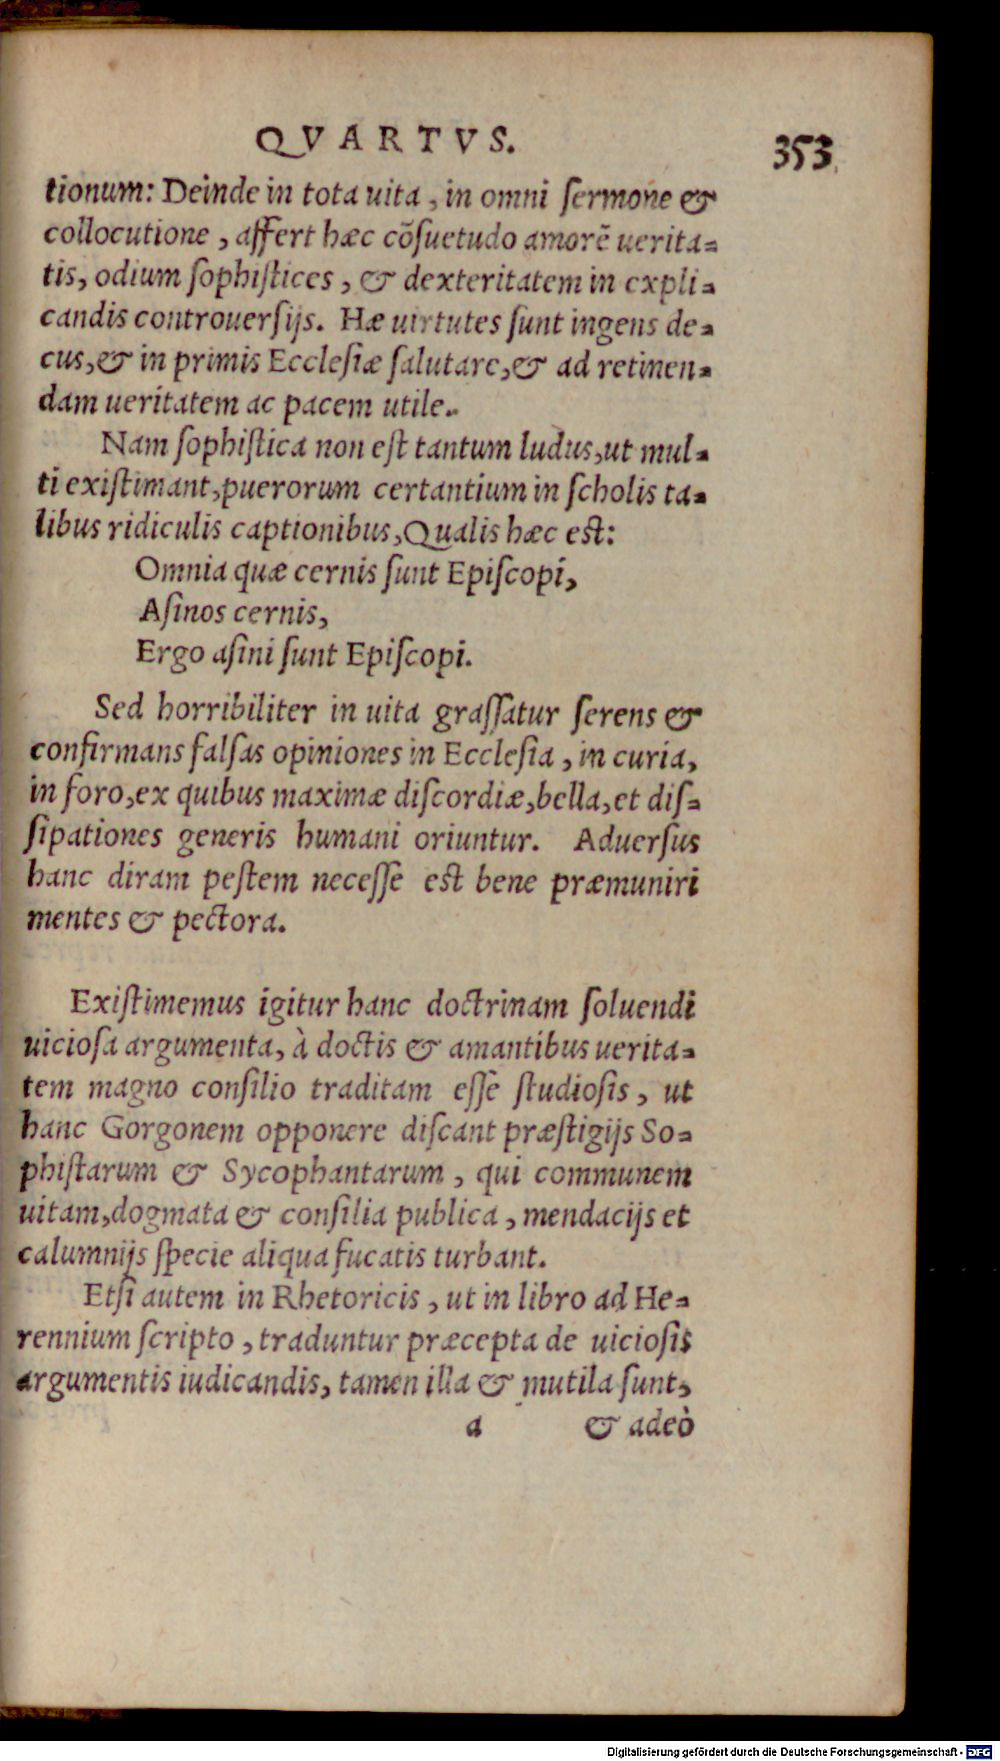 QVARTVS.
353
tionum: Deinde in tota uita, in omni ſermone &
collocutione, affert hæc cõſuetudo amorẽ uerita-
tis, odium ſophiſtices, & dexteritatem in expli-
candis controuerſijs. Hæ uirtutes ſunt ingens de-
cus, & in primis Eccleſiæ ſalutare, & ad retinen-
dam ueritatem ac pacem utile.
Nam ſophiſtica non eſt tantum ludus, ut mul-
ti exiſtimant, puerorum certantium in ſcholis ta-
libus ridiculis captionibus, Qualis hæc est:
Omnia quæ cernis ſunt Epiſcopi,
Aſinos cernis,
Ergo aſini ſunt Epiſcopi.
Sed horribiliter in uita graſſatur ſerens &
confirmans falſas opiniones in Eccleſia, in curia,
in foro, ex quibus maximæ diſcordiæ, bella, et diſ-
ſipationes generis humani oriuntur. Aduerſus
hanc diram peſtem neceſſe est bene præmuniri
mentes & pectora.
Exiſtimemus igitur hanc doctrinam ſoluendi
uicioſa argumenta, à doctis & amantibus uerita-
tem magno conſilio traditam eſſe ſtudioſis, ut
hanc Gorgonem opponere diſcant præſtigijs So-
phiſtarum & Sycophantarum, qui communem
uitam, dogmata & conſilia publica, mendacijs et
calumnijs ſpecie aliqua fucatis turbant.
Etſi autem in Rhetoricis, ut in libro ad He-
rennium ſcripto, traduntur præcepta de uicioſis
argumentis iudicandis, tamen illa & mutila ſunt,
a & adeò
Digitalisierung gefördert durch die Deutsche Forschungsgemeinschaft - DFG